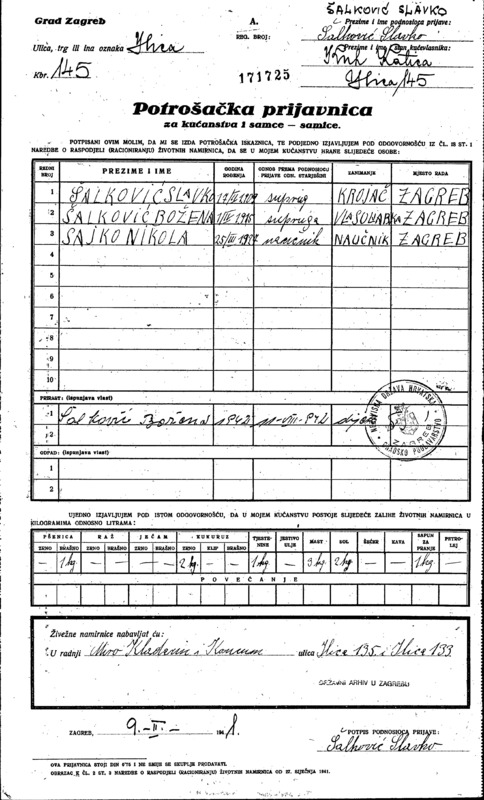 Grad Zagreb
Ulica, trg ili ina oznaka Ilica
Kbr. 145
A.
REG. BROJ:
171725
ŠALKOVIĆ SLAVKO
Prezime i ime podnosioca prijave:
Šalković Slavko
Prezime i ime i stan kućevlasnika:
Katica
Ilica 145
Potrošačka prijavnica
za kućanstva i samce — samice.
POTPISANI OVIM MOLIM, DA MI SE IZDA POTROŠAČKA ISKAZNICA, TE PODJEDNO IZJAVLJUJEM POD ODGOVORNOŠĆU IZ ČL. 18 ST. 1
NAREDBE O RASPODJELI (RACIONIRANJU) ŽIVOTNIH NAMIRNICA, DA SE U MOJEM KUĆANSTVU HRANE SLIJEDEĆE OSOBE:
REDNI BROJ PREZIME I IME GODINA ROĐENJA ODNOS PREMA PODNOSIOCU PRIJAVE ODN. STARJEŠINI ZANIMANJE MJESTO RADA
1 ŠALKOVIĆ SLAVKO suprug KROJAČ ZAGREB
2 ŠALKOVIĆ BOŽENA supruga ZAGREB
3 SAJKO NIKOLA naučnik NAUČNIK ZAGREB
4
5
6
7
8
9
10
PRIRAST: (ispunjava vlast)
1 Šalković Božena 1942 11-VIII-942
2
NEZAVISNA DRŽAVA HRVATSKA
GRADSKO POGLAVARSTVO
ZAGREB
OTPAD: (ispunjava vlast)
1
2
UJEDNO IZJAVLJUJEM POD ISTOM ODGOVORNOŠĆU, DA U MOJEM KUĆANSTVU POSTOJE SLIJEDEĆE ZALIHE ŽIVOTNIH NAMIRNICA U
KILOGRAMIMA ODNOSNO LITRAMA:
PŠENICA RAŽ JEČAM KUKURUZ TJESTENINE JESTIVO ULJE MAST SOL ŠEĆER KAVA SAPUN ZA PRANJE PETROLEJ
ZRNO BRAŠNO ZRNO BRAŠNO ZRNO BRAŠNO ZRNO KLIP BRAŠNO
— 1 kg. — — — — 2 kg. — — 1 kg. — 3 kg. 2 kg. — — 1 kg —
POVEĆANJE
Živežne namirnice nabavljat ću:
U radnji Miro i ulica Ilica 135 i Ilica 133
DRŽAVNI ARHIV U ZAGREBU
ZAGREB, 9.-II.- 194
POTPIS PODNOSIOCA PRIJAVE:
Šalković Slavko
OVA PRIJAVNICA STOJI DIN 0'75 I NE SMIJE SE SKUPLJE PRODAVATI.
OBRAZAC K ČL. 2 ST. 3 NAREDBE O RASPODJELI (RACIONIRANJU) ŽIVOTNIH NAMIRNICA OD 27. SIJEČNJA 1941.